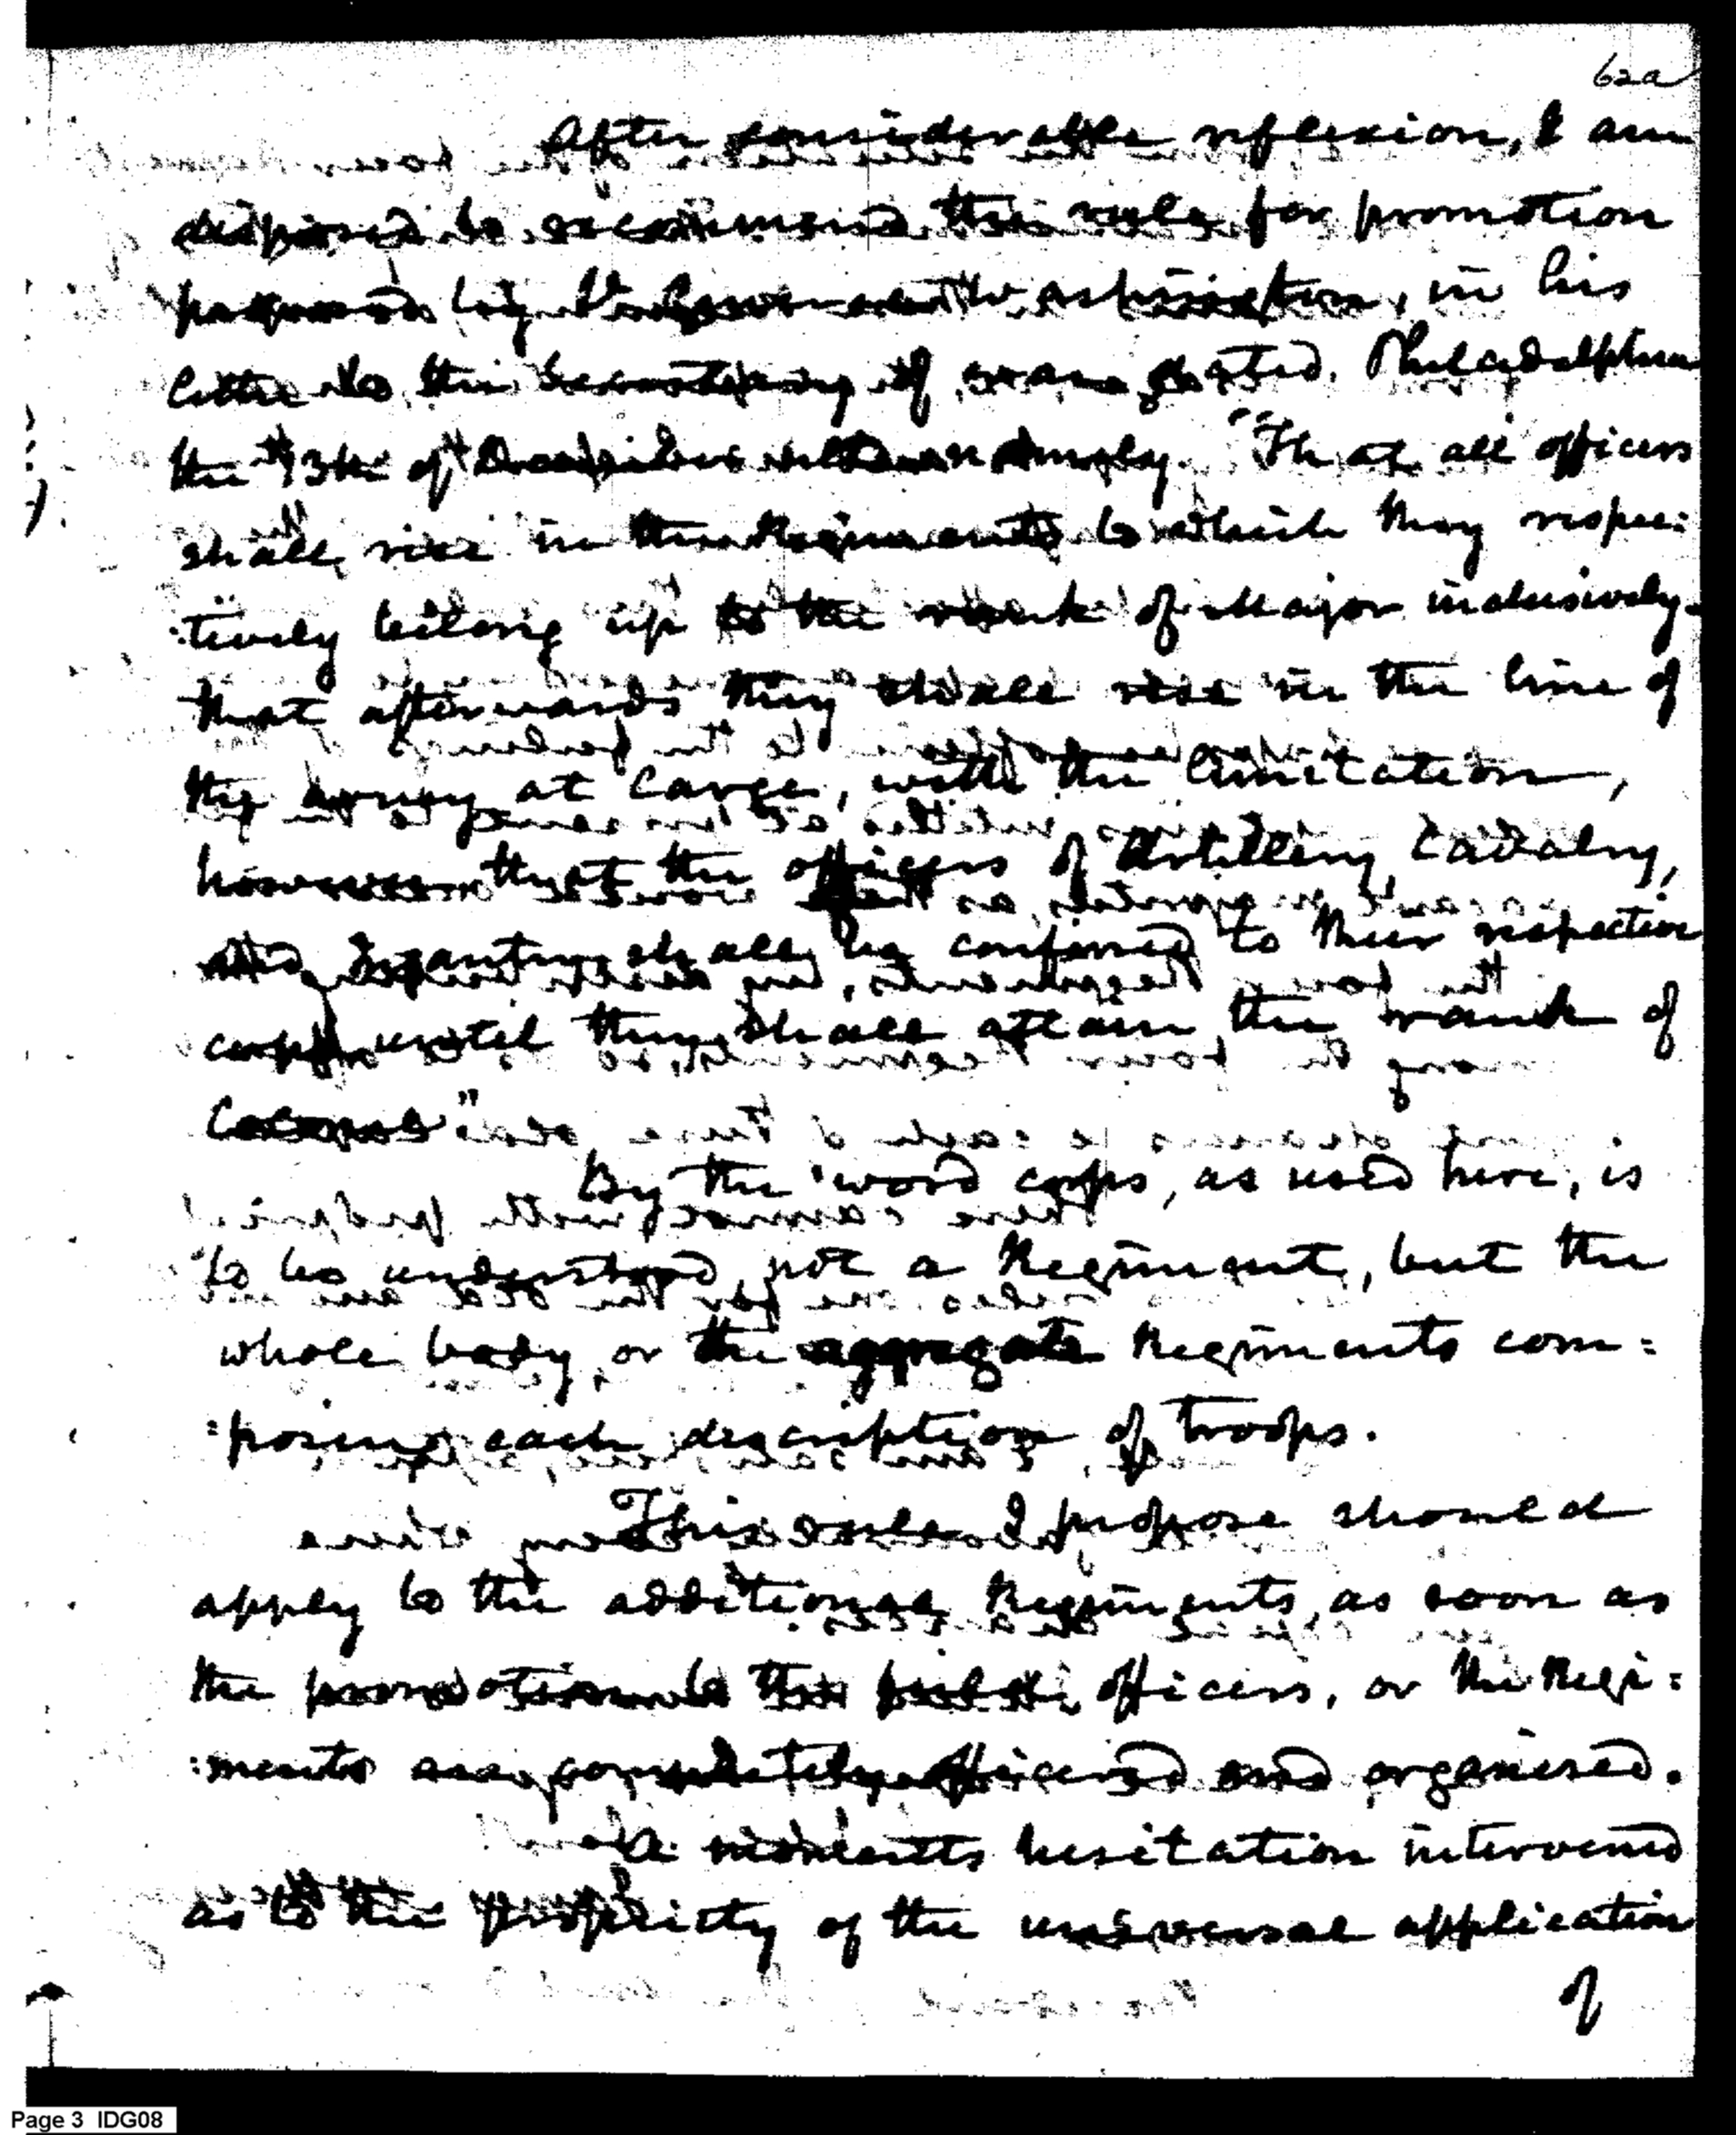 62a
After considerable reflexion, I am
disposed to recommend the rule for promotion
proposed by Lt. General Washington, in his
letter to the Secretary of war dated, Philadelphia
the 13th of December namely. "That all officers
shall rise in the Regiments to which they respec:
:tively belong up to the rank of Major inclusively-
that afterwards they shall rise in the line of
the army at large, with the limitation,
however that the officers of Artillery, Cavalry,
and Infantry, shall be confined to their respective
corps until they shall attain the rank of
Colonel"
By the word corps, as used here, is
to be understood, not a Regiment, but the
whole body, or the aggregate Regiments com:
:posing each description of troops.
This rule I propose should
apply to the additional Regiments, as soon as
the promotions to the officers, or the Regi:
:ments are completely officered and organised.
A moments hesitation intervened
as to the propriety of the universal application
of
Page 3 IDG08